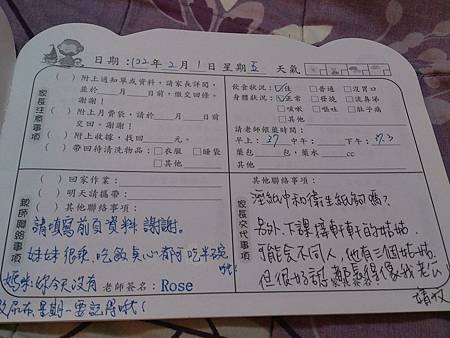 日期：102年2月1日星期五 天氣
家長注意事項
( ) 附上通知單或資料，請家長詳閱，
並於___月___日前，繳交回條。
謝謝！
( ) 附上月費袋，請於___月___日前
交回。謝謝！
( ) 附上收據，找回___元。
( ) 帶回待清洗物品：□衣服 □睡袋
□其他
飲食狀況：☑佳 □普通 □沒胃口
身體狀況：☑正常 □發燒 □流鼻涕
□咳嗽 □嘔吐 □肚子痛
□其他
請老師餵藥時間：
早上：37 中午： 下午：37.3
藥包 包，藥水 cc
其他
親師聯絡事項
( ) 回家作業：
( ) 明天請攜帶：
( ) 其他聯絡事項：
請填寫前頁資料 謝謝。
妹妹很乖，吃飯點心都可吃半碗
哦！
媽咪：妳今天沒有 老師簽名：Rose
尿布,星期一要記得哦！
家長交代事項
其他聯絡事項：
溼紙巾和衛生紙夠嗎？
另外，下課接軒軒的姑姑，
可能會不同人，他有三個姑姑
但很好認，都長得像我老公